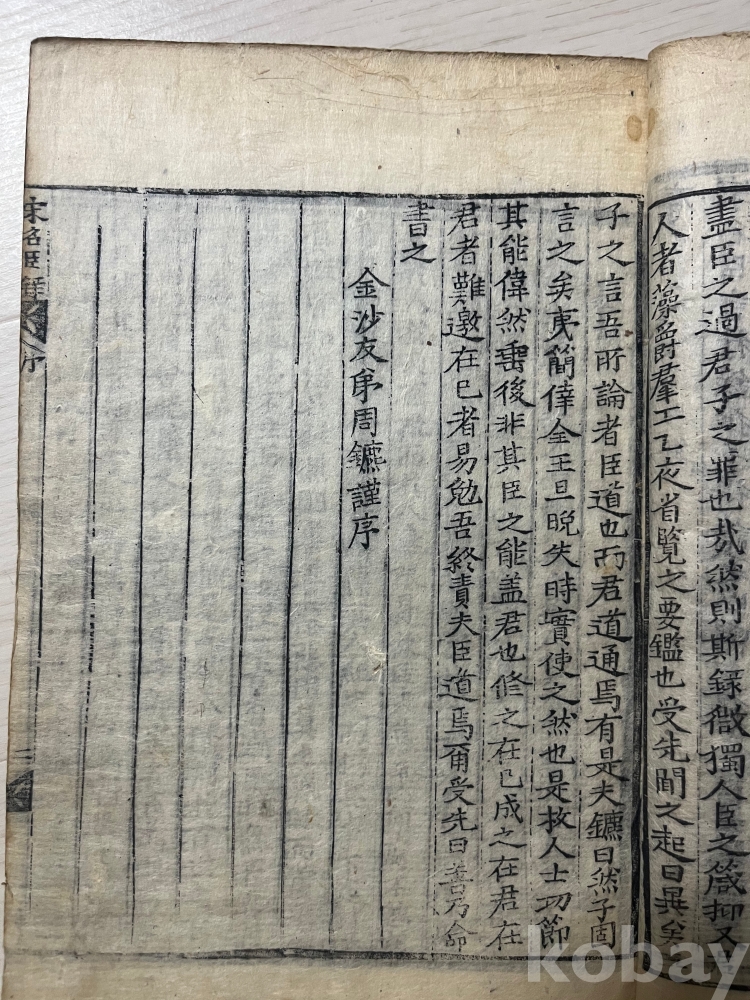 盡臣之過君子之罪也哉然則斯錄微獨人臣之箴抑又
人者藻爵羣工乙夜省覽之要鑑也受先聞之起曰異矣
子之言吾所論者臣道也而君道通焉有是夫鑣曰然子固
言之矣夷簡倖全王旦晩失時實使之然也是故人士功節
其能偉然垂後非其臣之能盖君也修之在已成之在君在
君者難邀在已者易勉吾終責夫臣道焉爾受先曰善乃命
書之
金沙友弟周鑣謹序
宋名臣錄
序
kobay